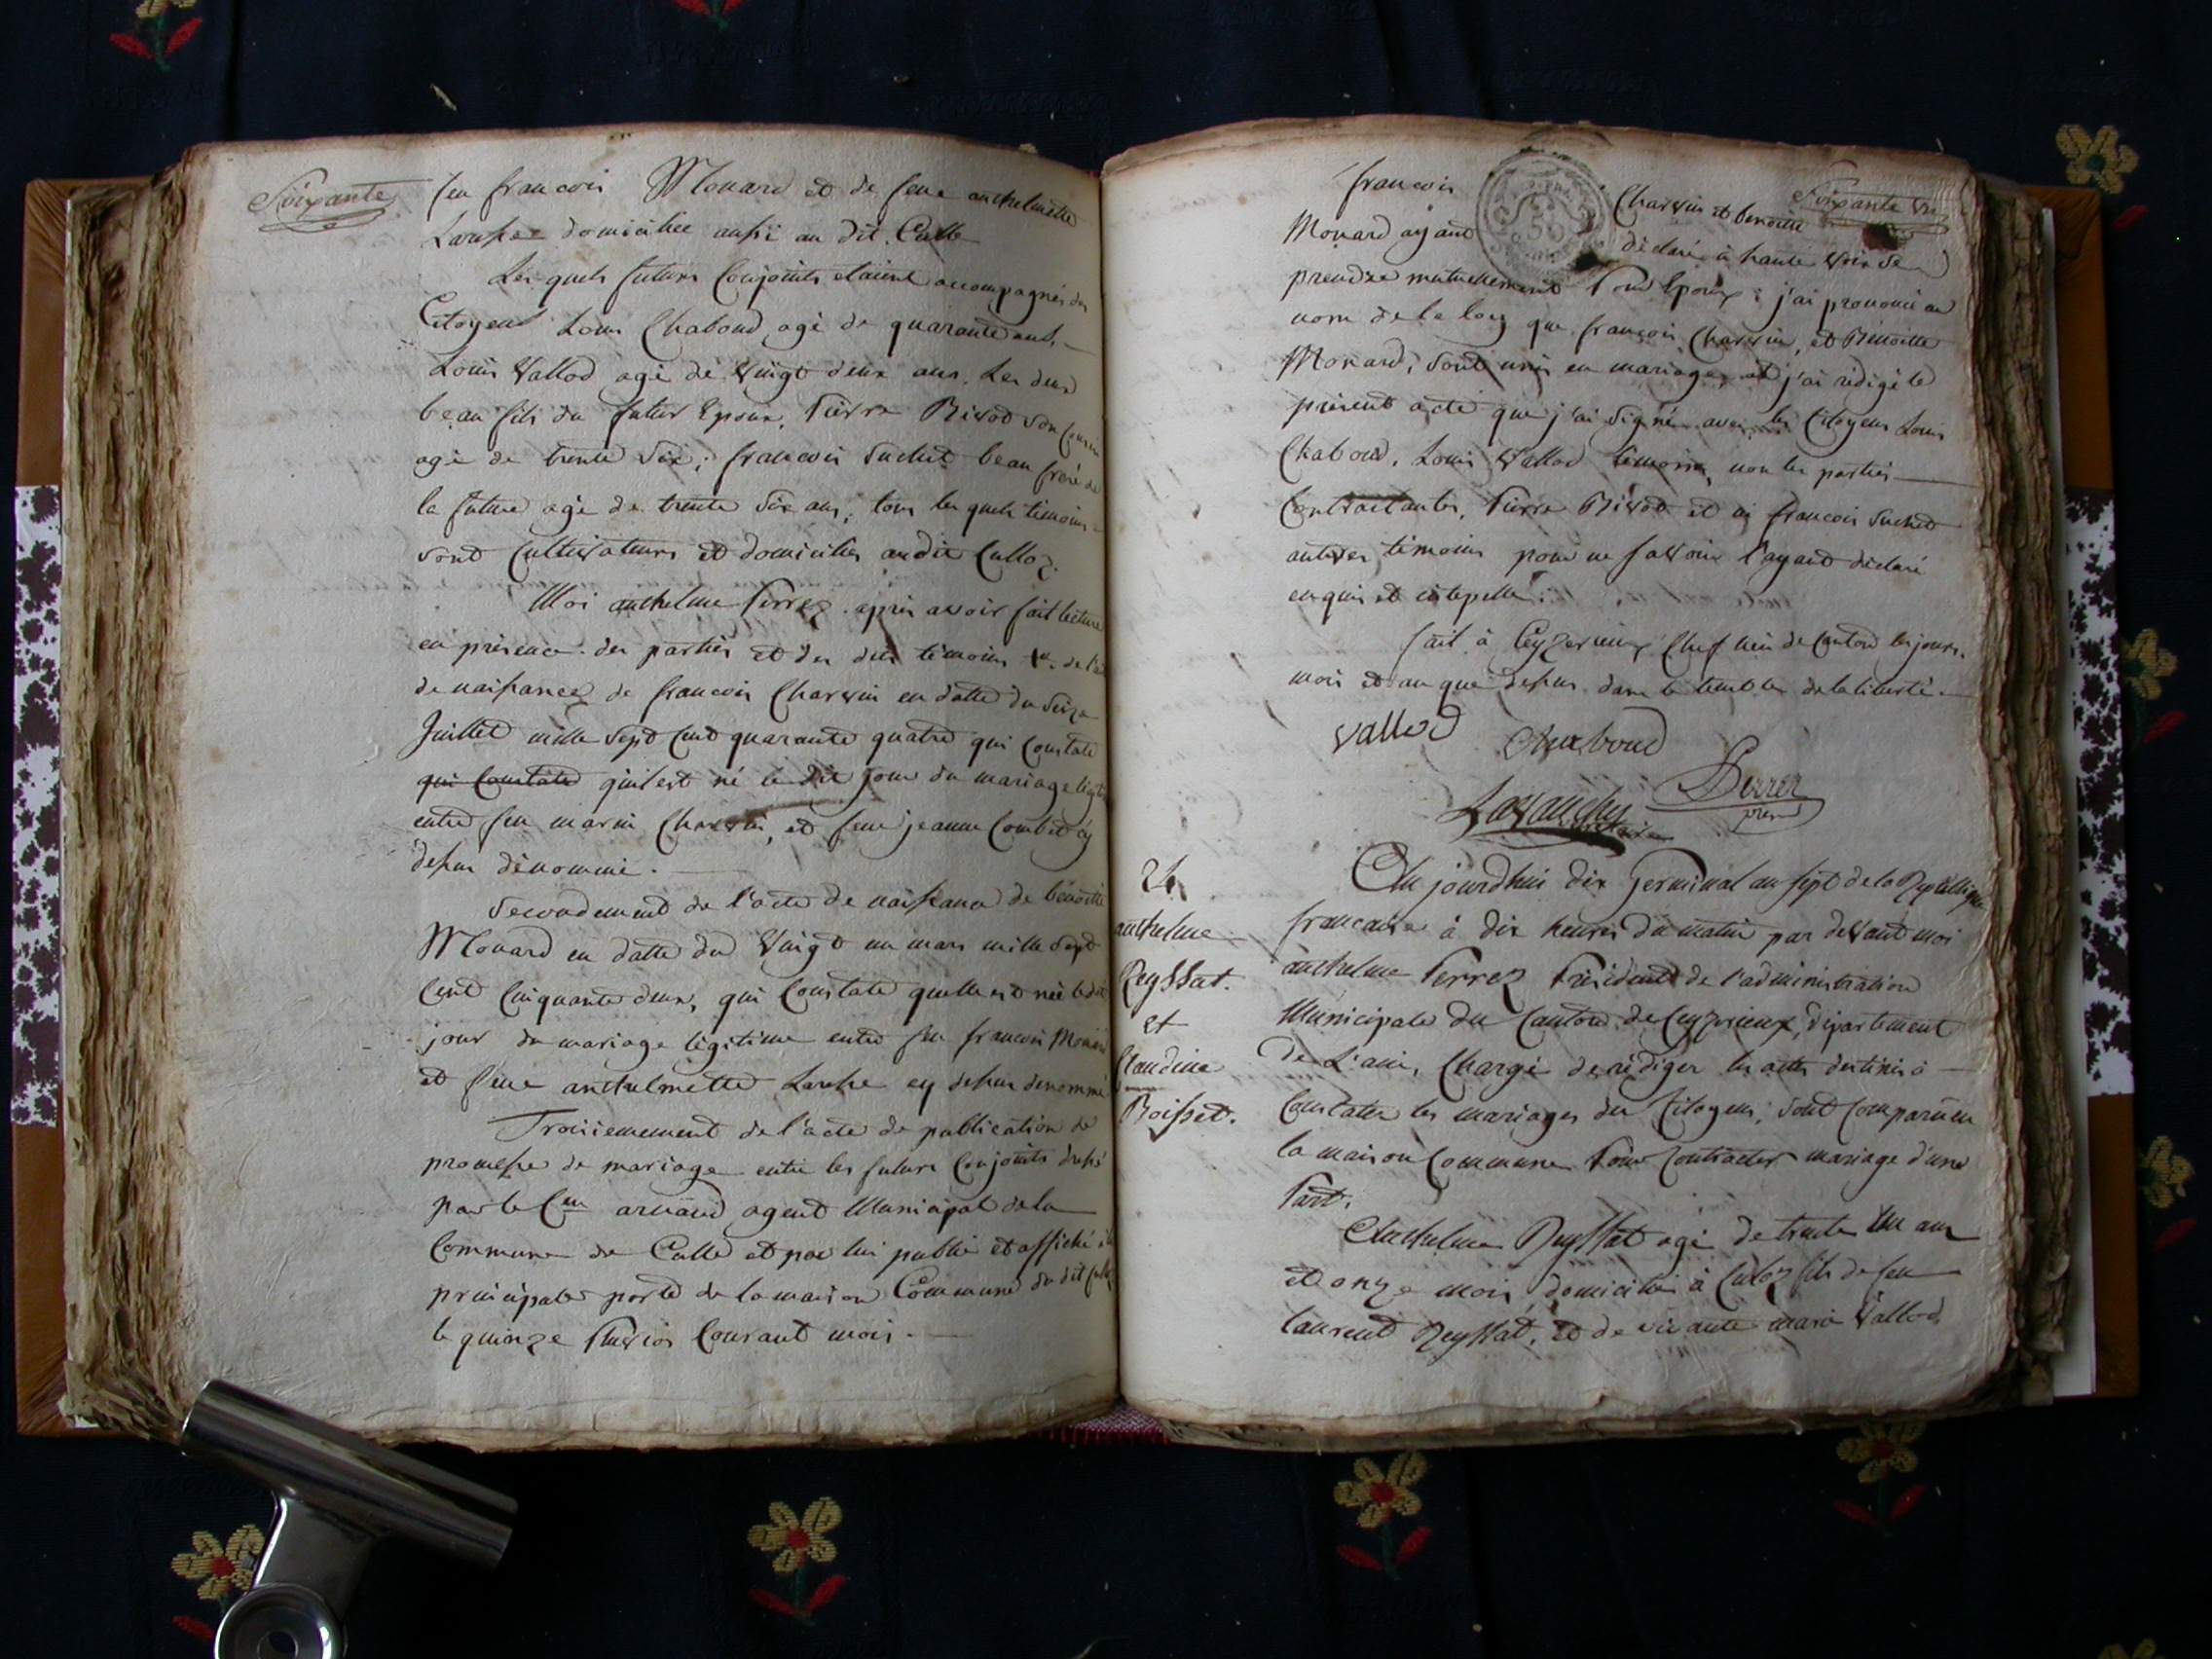 Soixante
feu francois Monard et de feue anthelmette
Larphe domiciliée aussi au dit Culle
Les quels futurs Conjoints etaient accompagnés des
Citoyens Louis Chaboud agé de quarante ans,
Louis Vallod agé de Vingt deux ans, Les deux
beau fils du futur Epoux, Pierre Rivod son Cousin
agé de trente Six; francois Suchet beau frere de
la future agé de trente Six ans, tous les quels témoins
sont Cultivateurs et domiciliés audit Culloz.
Moi anthelme Ferrez après avoir fait lecture
en présence des parties et des dits témoins 1°. de l'acte
de naissance de francois Charvin en datte du Seize
Juillet mille Sept Cent quarante quatre qui Constate
qui Constate qu'il est né le dit jour du mariage légitime
entre feu marin Charvin, et feue jeanne Combet cy
dessus dénommé.
Secondement de l'acte de naissance de bénoitte
Monard en datte du Vingt un mars mille Sept
Cent Cinquante deux, qui Constate quelle est née le dit
jour du mariage légitime entre feu francois Monard
et feue anthelmette Larphe cy dessus denommé
Troisiemement de l'acte de publication de
promesse de mariage entre les futurs Conjoints dressé
par le Cen arnaud agent Municipal de la
Commune de Culle et par lui publié et affiché à la
principale porte de la maison Commune du dit Culle
le quinze Pluvios Courant mois.
Soixante Un
francois Charvin et benoitte
Monard ayant déclaré à haute Voix Se
prendre mutuellement Pour Epoux; j'ai prononcé au
nom de la loy que francois Charvin, et Bénoitte
Monard, Sont unis en mariage, et j'ai rédigé le
présent acte que j'ai Signé avec les Citoyens Louis
Chaboud, Louis Vallod témoins, non les parties
Contractantes, Pierre Rivod et ni francois Suchet
autres témoins pour ne savoir l'ayant déclaré
enquis et intepellé.
fait à Ceyzerieux Chef lieu de Canton les jours,
mois et an que dessus dans le temble de la liberté.
Vallod Chaboud
Ferrez
presid
24
anthelme
Reyssat.
et
Claudine
Roisset.
Au jourdhui dix Germinal an sept de la Republlique
francaise à dix heures du matin par devant moi
anthelme Ferrez Président de l'administration
Municipale du Canton de Ceyzerieux, départtement
de L'ain, Chargé de rédiger les actes destinés à
Constater les mariages des Citoyens, sont comparus en
la maison Commune Pour Contracter mariage d'une
Part.
Anthelme Reyssat agé de trente Un ans
et onze mois, domicilié à Culoz fils de feu
laurent Reyssat, et de vivante marie Vallod,